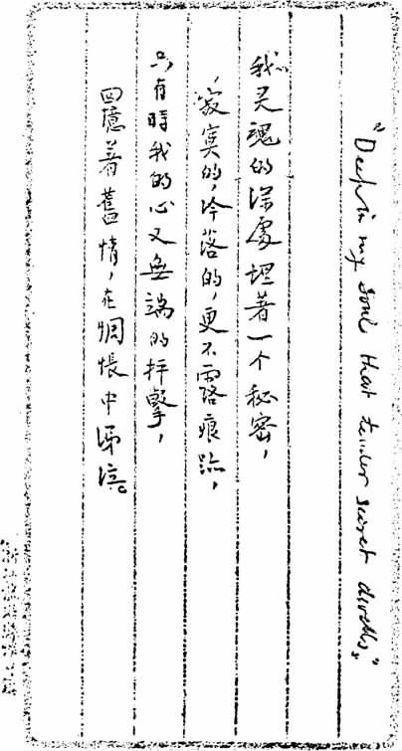 "Deep in my soul that tender secret dwells,"
我灵魂的深處埋着一个秘密，
寂寞的，冷落的，更不露痕跡，
只有時我的心又無端的抨擊，
回憶着舊情，在惆悵中涕泣。